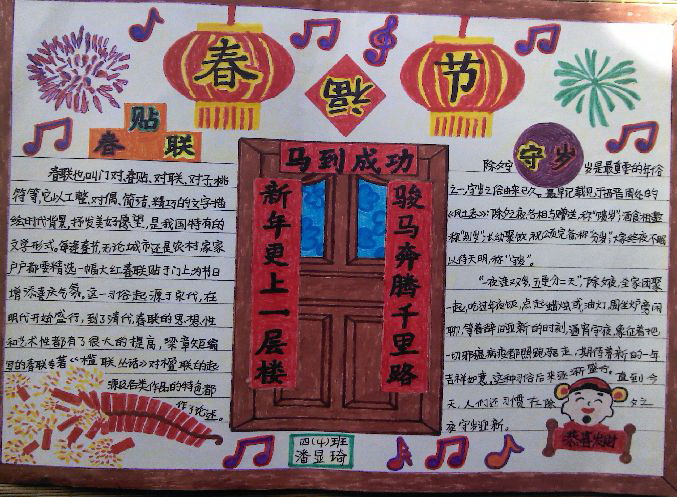 春节
福
贴
春联
守岁
马到成功
骏马奔腾千里路
新年更上一层楼
春联也叫门对、春贴、对联、对子,桃
符等,它以工整、对偶、简洁、精巧的文字描
绘时代背景,抒发美好愿望,是我国特有的
文学形式。每逢春节,无论城市还是农村,家家
户户都要精选一幅大红春联贴于门上,为节日
增添喜庆气氛。这一习俗起源于宋代,在
明代开始盛行,到了清代,春联的思想性
和艺术性都有了很大的提高,梁章矩编
写的春联专著《楹联丛话》对楹联的起
源及各类作品的特色都
作了论述。
除夕守岁是最重要的年俗
之一,守岁之俗由来已久。最早记载见于西晋周处的
《风土志》:除夕之夜,各相与赠送,称"馈岁";酒食相邀,
称"别岁";长幼聚饮,祝颂完备,称"分岁";大家终夜不眠,
以待天明,称"守岁"。
"一夜连双岁,五更分二天",除夕夜,全家团聚
一起,吃过年夜饭,点起蜡烛或油灯,围坐炉旁闲
聊,等着辞旧迎新的时刻,通宵守夜,象征着把
一切邪瘟病疫都照跑驱走,期待着新的一年
吉祥如意。这种习俗后来逐渐盛行,直到今
天,人们还习惯在除夕之
夜守岁迎新。
恭喜发财
四(4)班
潘显琦